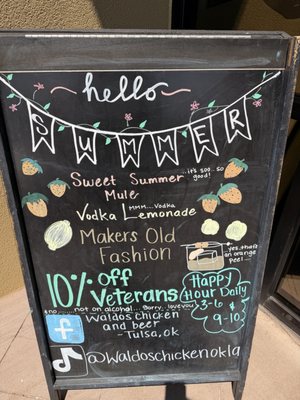 hello
SUMMER
Sweet Summer
Mule
..it's soo.. so good!
Vodka Lemonade
mmm...Vodka
Makers Old
Fashion
..yes, that's an orange peel...
10% off
Veterans
no, not on alcohol... Sorry, love you
Happy
Hour Daily
3-6 &
9-10
Waldos Chicken
and beer
- Tulsa, ok
f
@waldoschickenokla